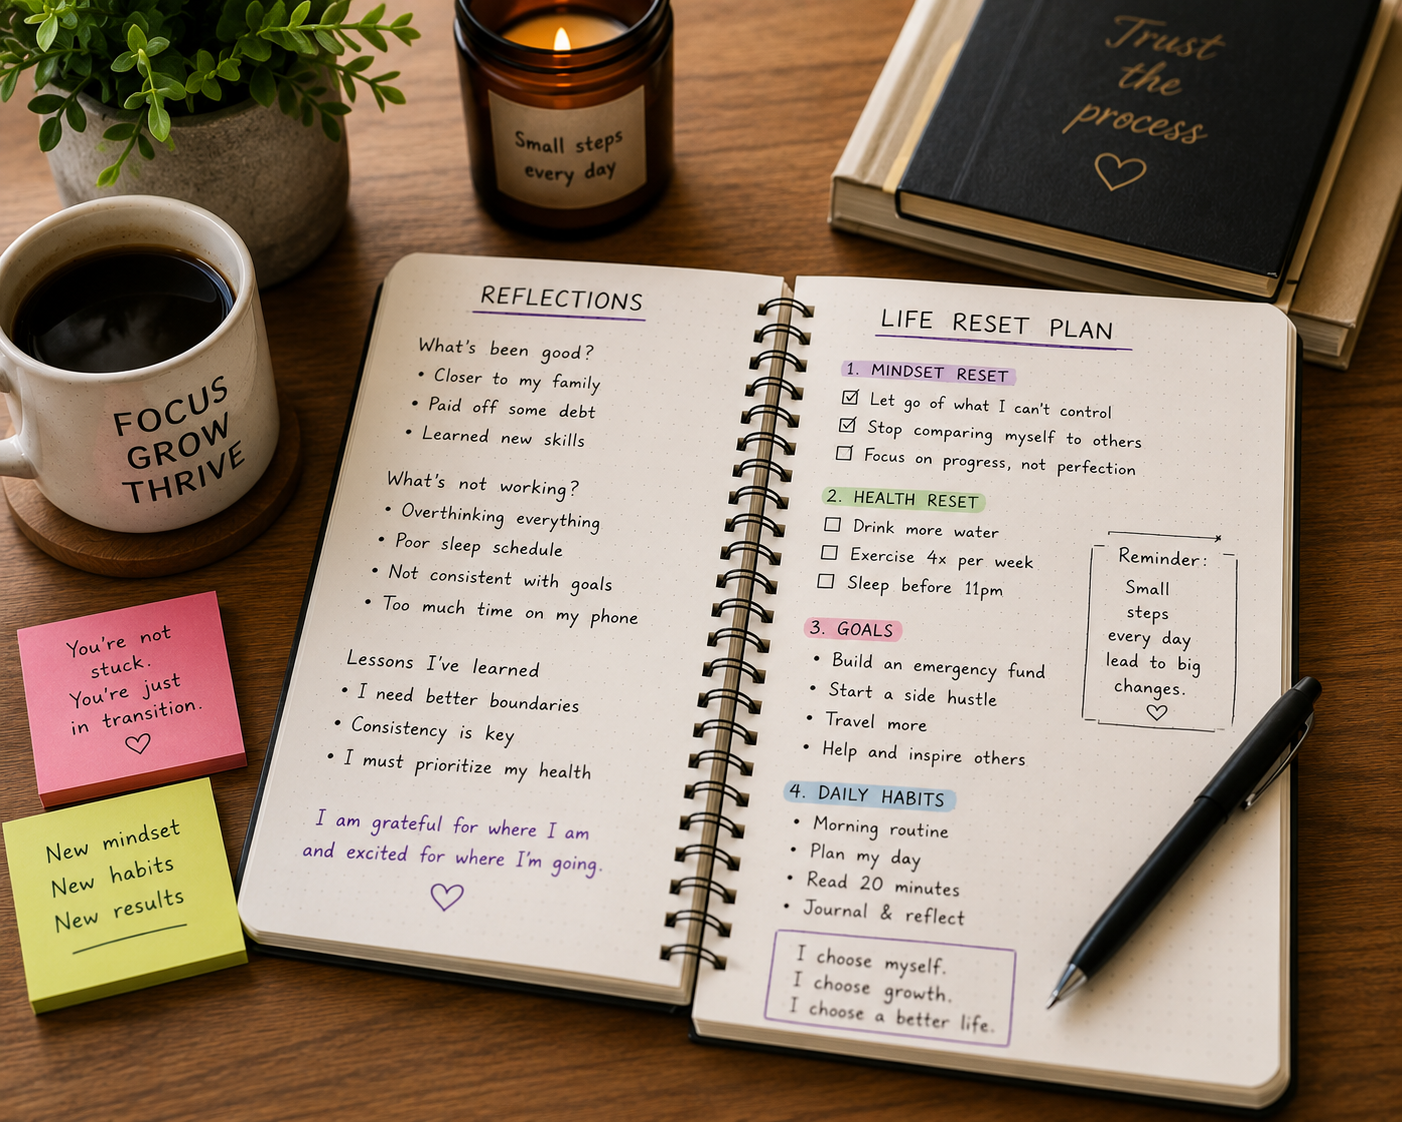 Small steps
every day
Trust
the
process
FOCUS
GROW
THRIVE
You're not
stuck.
You're just
in transition.
New mindset
New habits
New results
REFLECTIONS
What's been good?
• Closer to my family
• Paid off some debt
• Learned new skills
What's not working?
• Overthinking everything
• Poor sleep schedule
• Not consistent with goals
• Too much time on my phone
Lessons I've learned
• I need better boundaries
• Consistency is key
• I must prioritize my health
I am grateful for where I am
and excited for where I'm going.
LIFE RESET PLAN
1. MINDSET RESET
Let go of what I can't control
Stop comparing myself to others
Focus on progress, not perfection
2. HEALTH RESET
Drink more water
Exercise 4x per week
Sleep before 11pm
3. GOALS
• Build an emergency fund
• Start a side hustle
• Travel more
• Help and inspire others
4. DAILY HABITS
• Morning routine
• Plan my day
• Read 20 minutes
• Journal & reflect
I choose myself.
I choose growth.
I choose a better life.
Reminder:
Small
steps
every day
lead to big
changes.